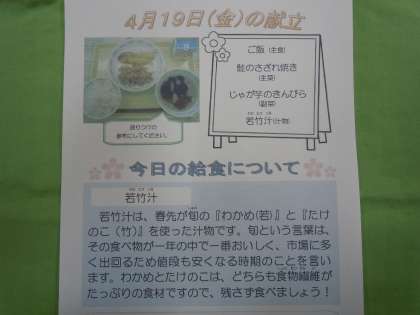 4月19日(金)の献立
ご飯(主食)
鮭のさざれ焼き
(主菜)
じゃが芋のきんぴら
(副菜)
若竹汁(汁物)
盛りつけの
参考にしてください。
今日の給食について
若竹汁
若竹汁は、春先が旬の『わかめ(若)』と『たけ
のこ(竹)』を使った汁物です。旬という言葉は、
その食べ物が一年の中で一番おいしく、市場に多
く出回るため値段も安くなる時期のことを言い
ます。わかめとたけのこは、どちらも食物繊維が
たっぷりの食材ですので、残さず食べましょう!